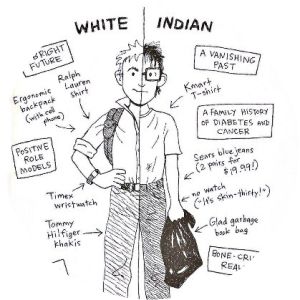 WHITE INDIAN
BRIGHT
FUTURE
Ralph
Lauren
shirt
Ergonomic
backpack
(with cell
phone)
POSITIVE
ROLE
MODELS
Timex
wristwatch
Tommy
Hilfiger
khakis
A VANISHING
PAST
Kmart
T-shirt
A FAMILY HISTORY
OF DIABETES AND
CANCER
Sears blue jeans
(2 pairs for
$19.99!)
no watch
("It's skin-thirty!")
Glad garbage
book bag
BONE-CR
REAL